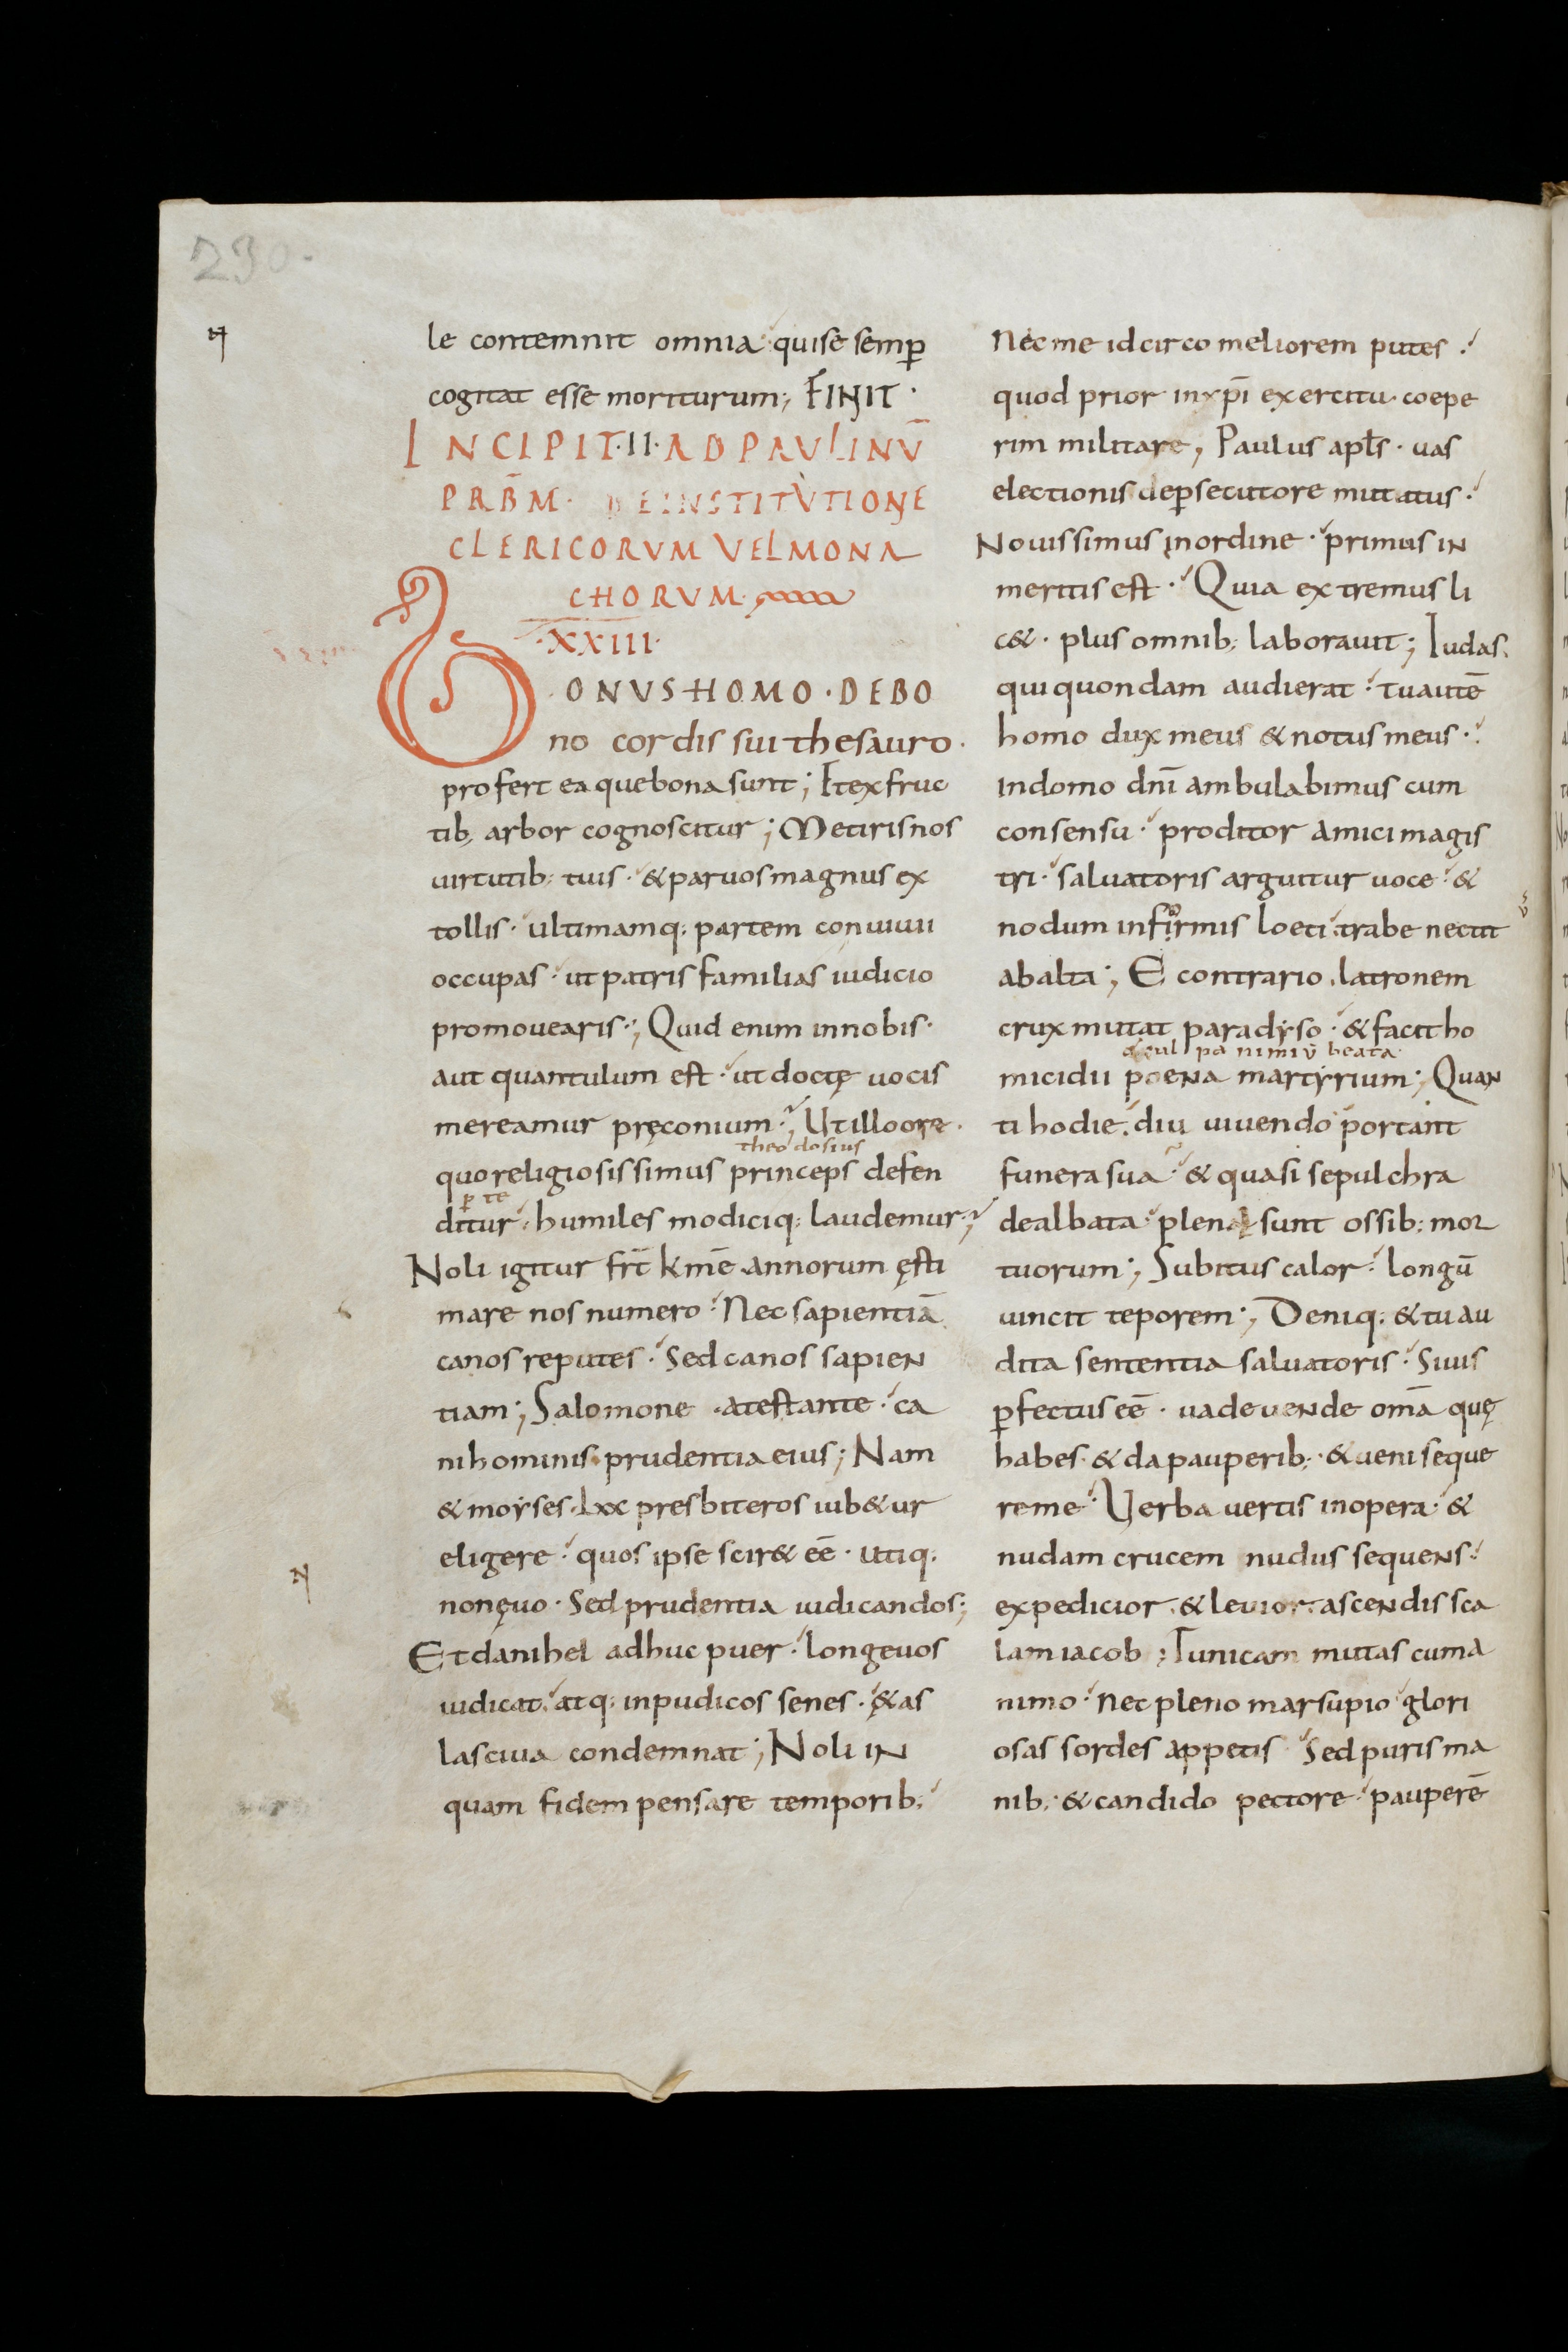 230.
le contemnit omnia quise semꝑ
cogitat esse moriturum; FINIT ·
INCIPIT·II·AD PAULINŪ
PRB̄M · DE INSTITUTIONE
CLERICORVM VEL MONA
CHORVM·
·XXIII·
BONVS HOMO · DE BO
no cordis sui thesauro ·
profert ea que bona sunt; Et ex fruc
tib; arbor cognoscitur; Metiris nos
uirtutib; tuis · & paruos magnus ex
tollis · ultimamq; partem conuiuii
occupas · ut patris familias iudicio
promouearis; Quid enim in nobis ·
aut quantulum est · ut doctę uocis
mereamur pręconium; Ut illo ore ·
theodosius
quo religiosissimus princeps defen
ꝑ te
ditur · humiles modiciq; laudemur;
Noli igitur frt̄ kmē annorum ęsti
mare nos numero · Nec sapientiā
canos reputes · Sed canos sapien
tiam; Salomone atestante · ca
ni hominis prudentia eius; Nam
& moyses · lxx presbiteros iub&ur
eligere · quos ipse scir& eē · utiq;
non ęuo · Sed prudentia iudicandos;
Et danihel adhuc puer · longeuos
iudicat · atq; inpudicos senes · & as
lasciua condemnat; Noli in
quam fidem pensare temporib;
Nec me idcirco meliorem putes ·
quod prior in xp̄i exercitu · coepe
rim militare; Paulus apl̄s · uas
electionis de ꝑsecutore mutatus ·
Nouissimus in ordine · primus in
meritis est · Quia extremus li
c& · plus omnib; laborauit; Iudas ·
qui quondam audierat · tu autē
homo dux meus & notus meus ·
in domo dnī ambulabimus cum
consensu · proditor amici magis
tri · saluatoris arguitur uoce · &
nodum infirmis loeti trabe nectit
ab alta; E contrario · latronem
crux mutat paradyso · & facit ho
nimiū beata
micidii poena martyrium; Quan
ti hodie · diu uiuendo portant
funera sua · & quasi sepulchra
dealbata · plena sunt ossib; mor
tuorum; Subitus calor · longū
uincit teporem; Deniq; & tu au
dita sententia saluatoris · Si uis
ꝑfectus eē · uade uende om̄a quę
habes · & da pauperib; · & ueni seque
re me · Verba uertis in opera · &
nudam crucem nudus sequens ·
expedicior · & leuior · ascendis sca
lam iacob; Tunicam mutas cum a
nimo · nec pleno marsupio glori
osas sordes appetis · Sed puris ma
nib; · & candido pectore · pauperē